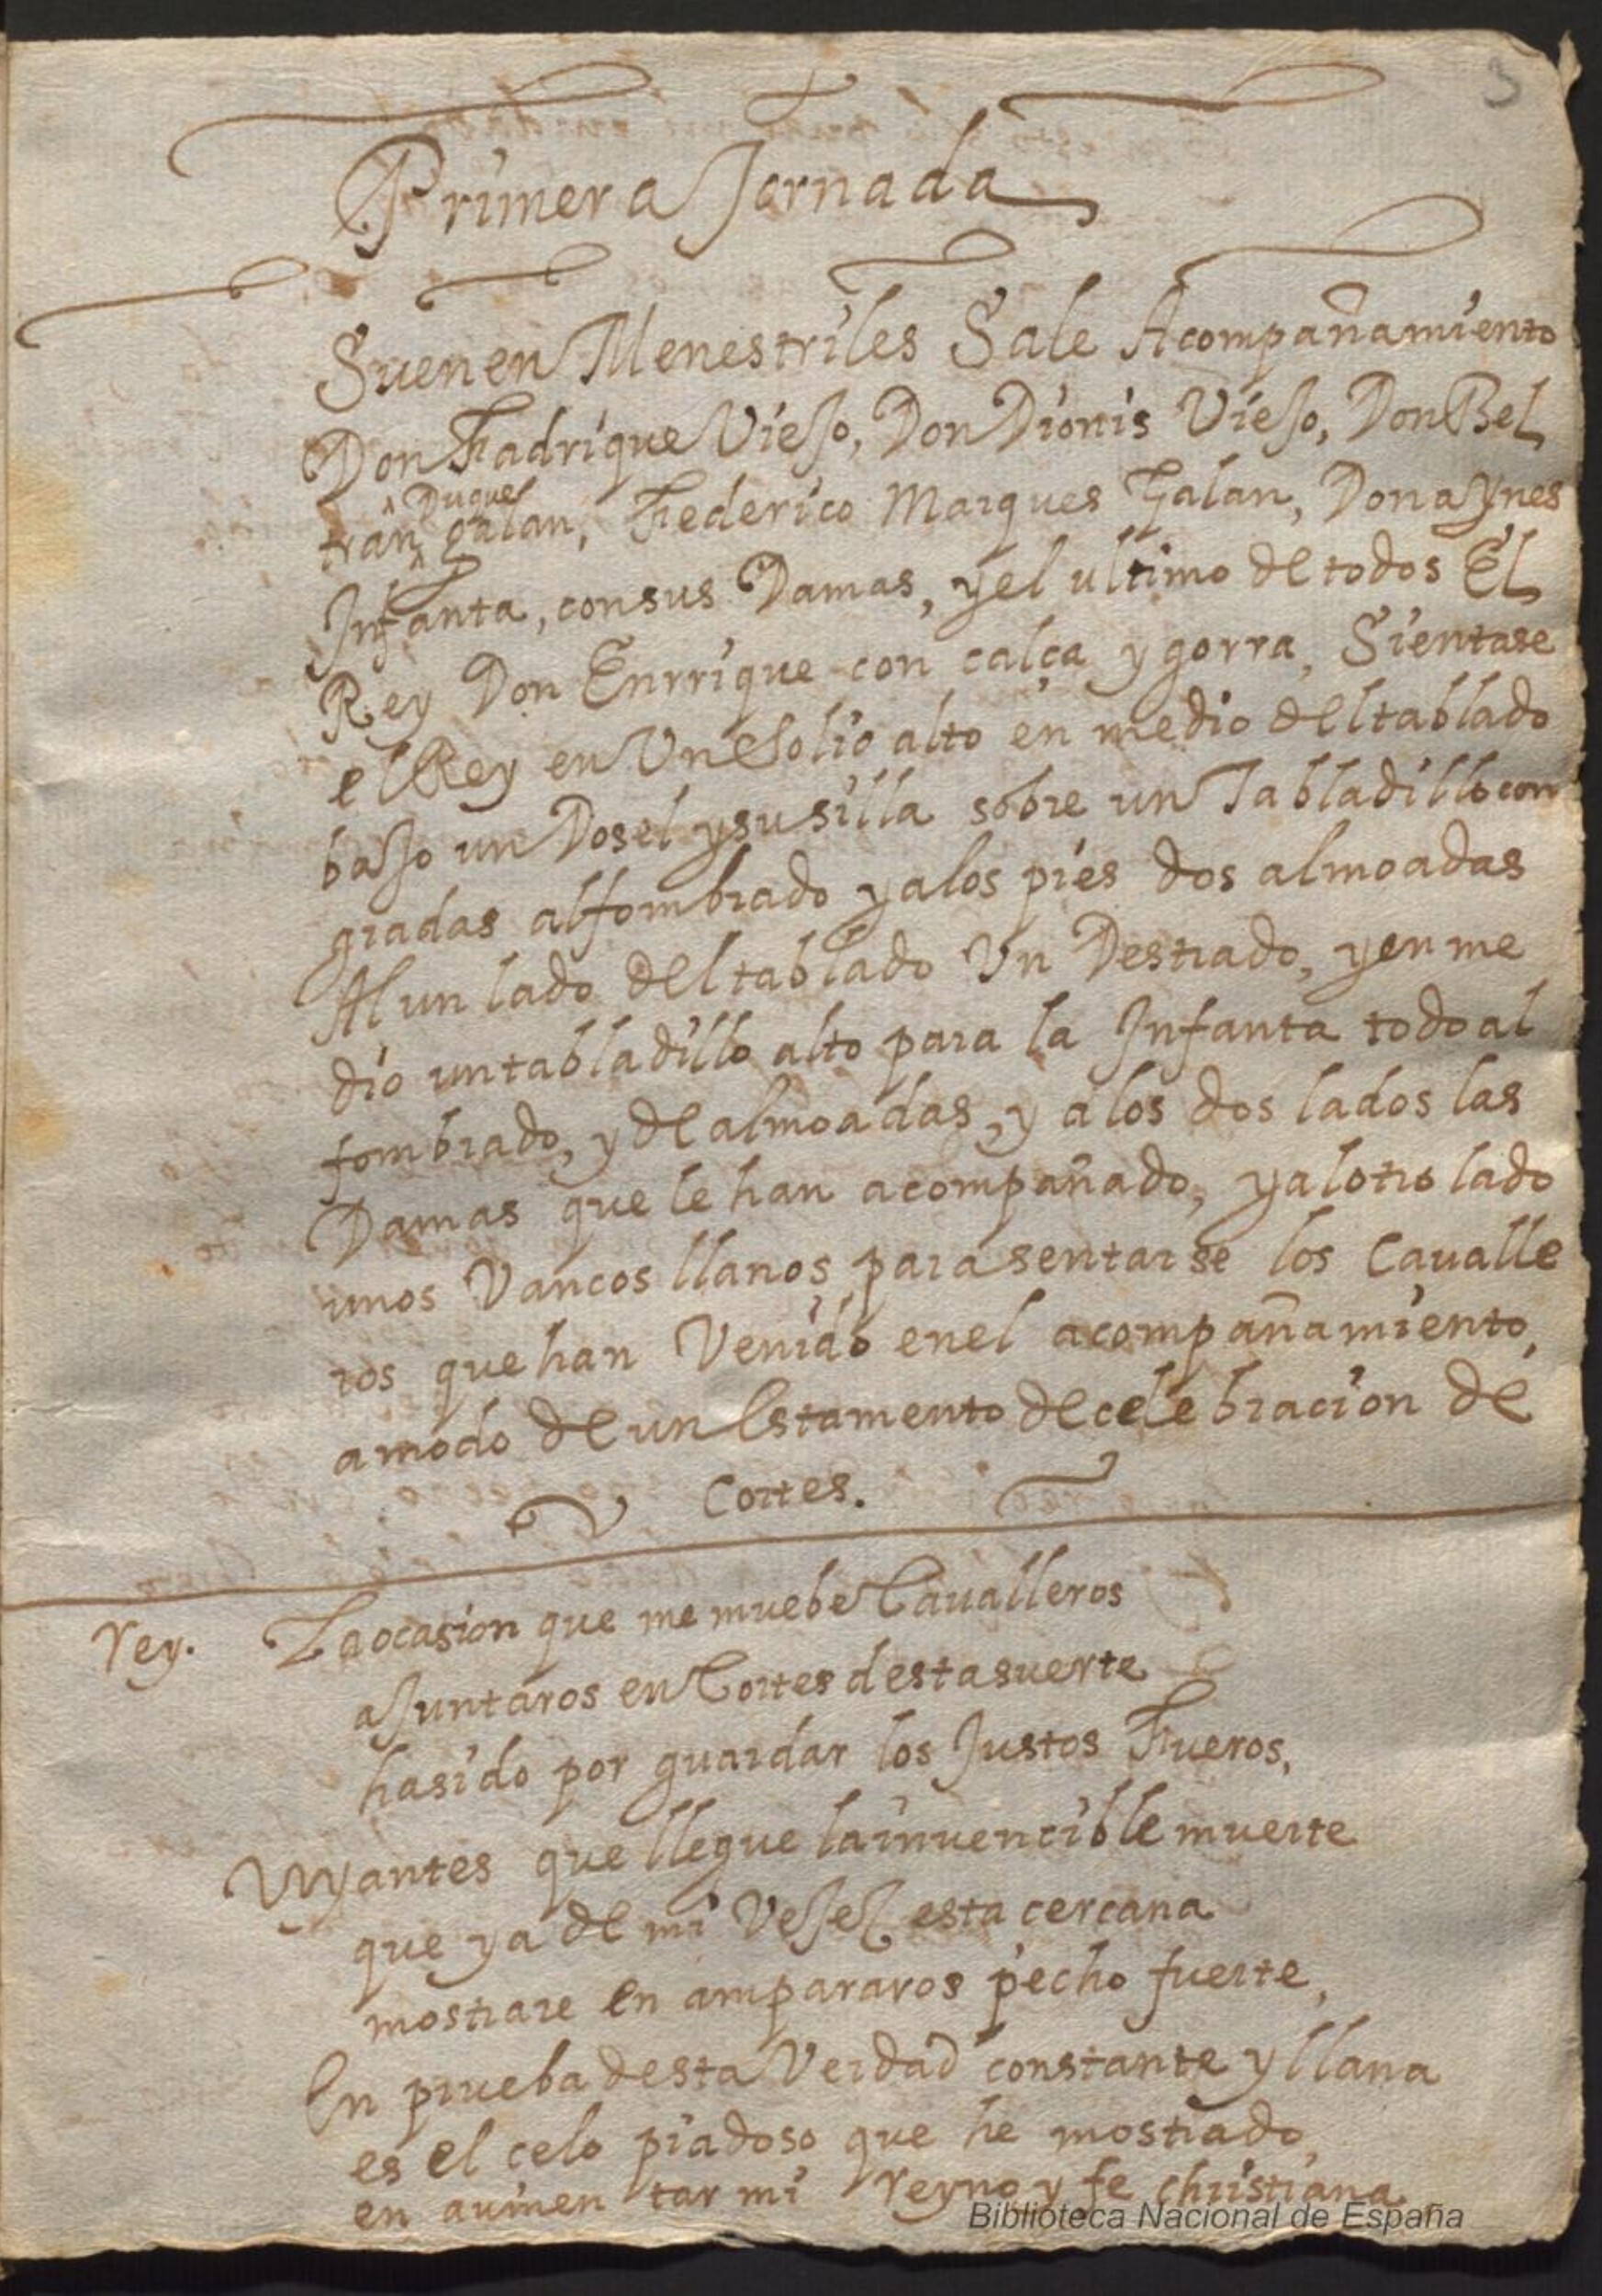 3
Primera Jornada
Suenen Menestriles Sale Acompañamiento
Don Fadrique Viejo, Don Dionis Viejo, Don Bel
Duque
tran galan, Federico Marques Galan, Dona Ynes
Infanta, con sus Damas, y el ultimo de todos El
Rey Don Enrrique con calça y gorra, Sientase
el Rey en Un Solio alto en medio del tablado
bajo un Dosel y su silla sobre un Tabladillo con
gradas alfombrado y a los pies dos almoadas
Al un lado del tablado Un Destrado, y en me
dio un tabladillo alto para la Infanta todo al
fombrado, y de almoadas, y a los dos lados las
Damas que le han acompañado, y al otro lado
unos Vancos llanos para sentarse los Caualle
ros que han Venido en el acompañamiento,
a modo de un Estamento de celebracion de
Cortes.
Rey. La ocasion que me muebe Caualleros
a juntaros en Cortes desta suerte
ha sido por guardar los Justos Fueros,
Y antes que llegue la inuencible muerte
que ya de mi Vejez esta cercana
mostrare en ampararos pecho fuerte,
En prueba desta Verdad constante y llana
es el celo piadoso que he mostrado,
en aumentar mi Reyno y fe christiana
Biblioteca Nacional de España